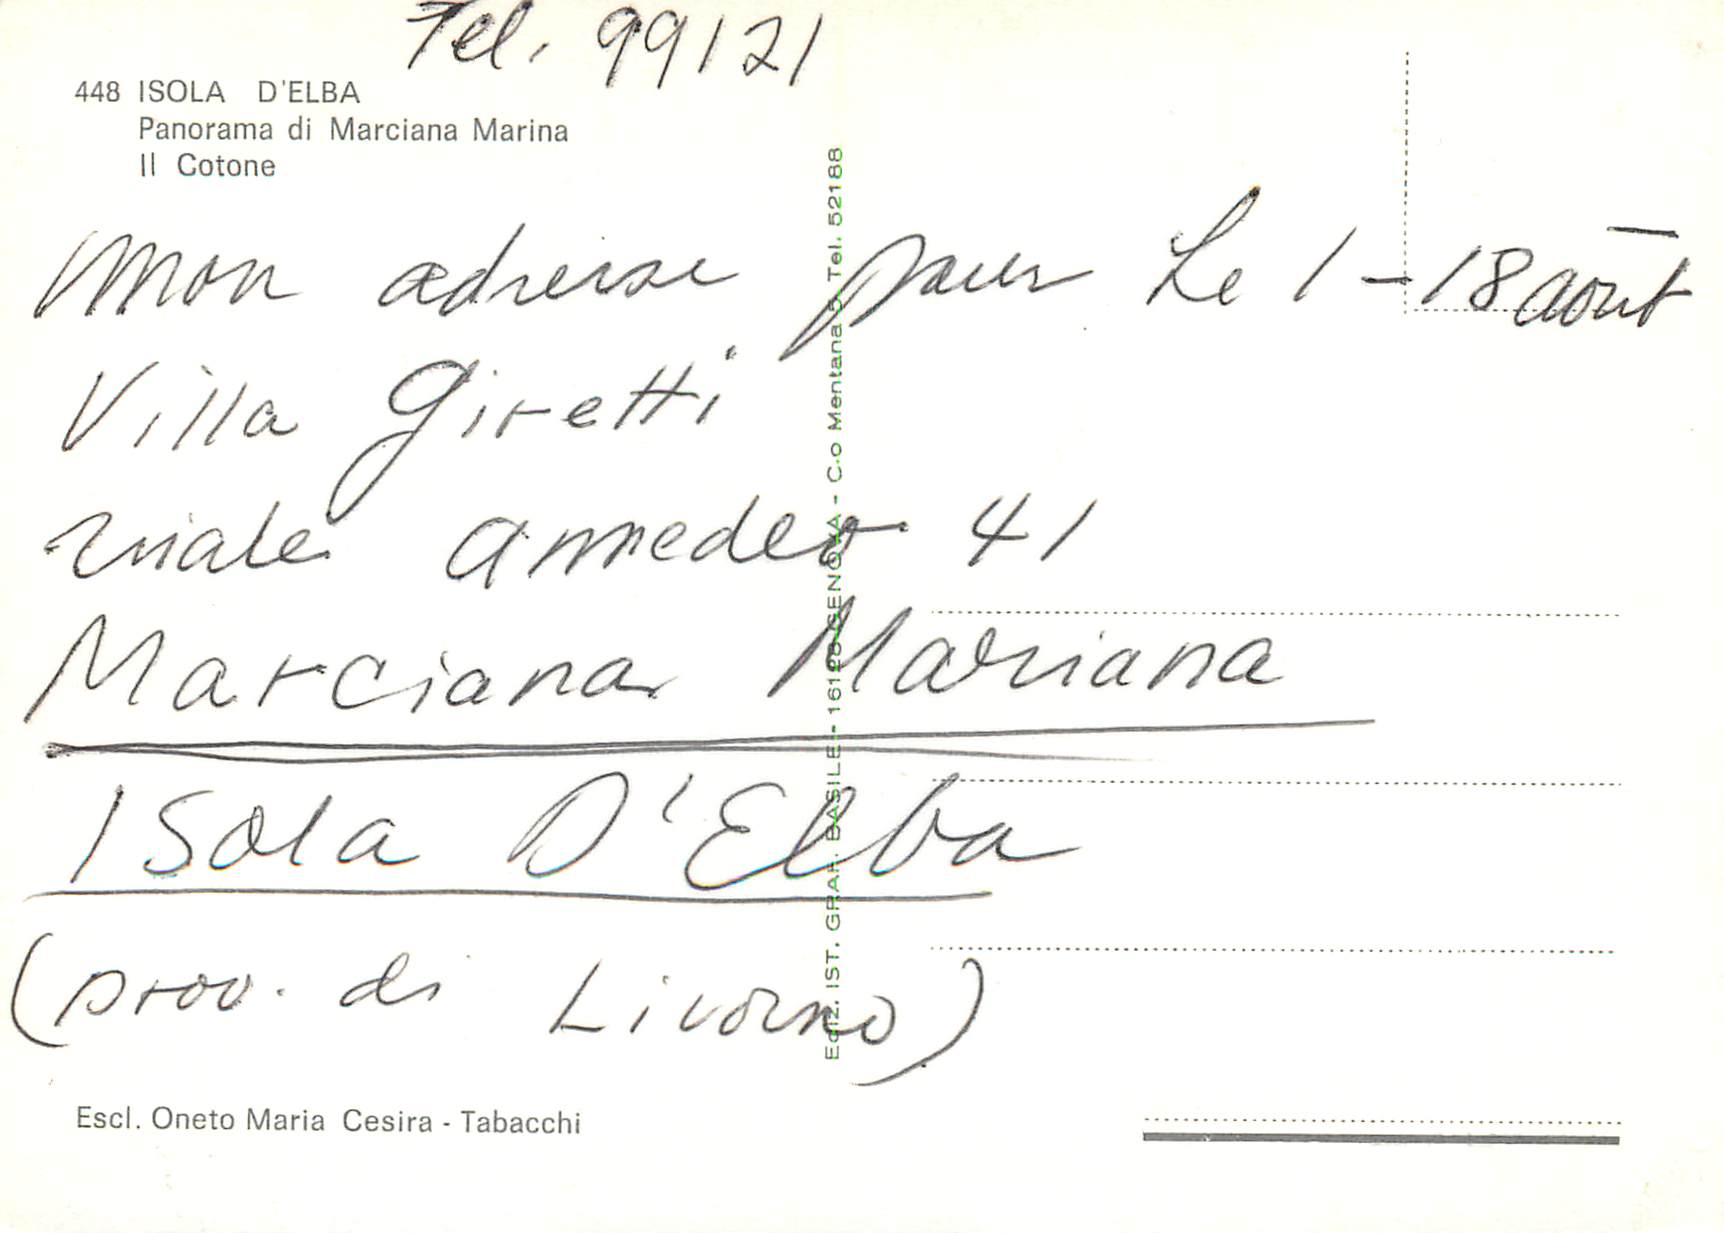 Tel. 99121
448 ISOLA D'ELBA
Panorama di Marciana Marina
Il Cotone
mon adresse pour Le 1-18 aout
Villa Giretti
viale amedeo 41
Marciana Mariana
Isola D'Elba
(prov. di Livorno)
Ediz. IST. GRAF. BASILE - 16128 GENOVA - C.o Mentana 5 Tel. 52188
Escl. Oneto Maria Cesira - Tabacchi